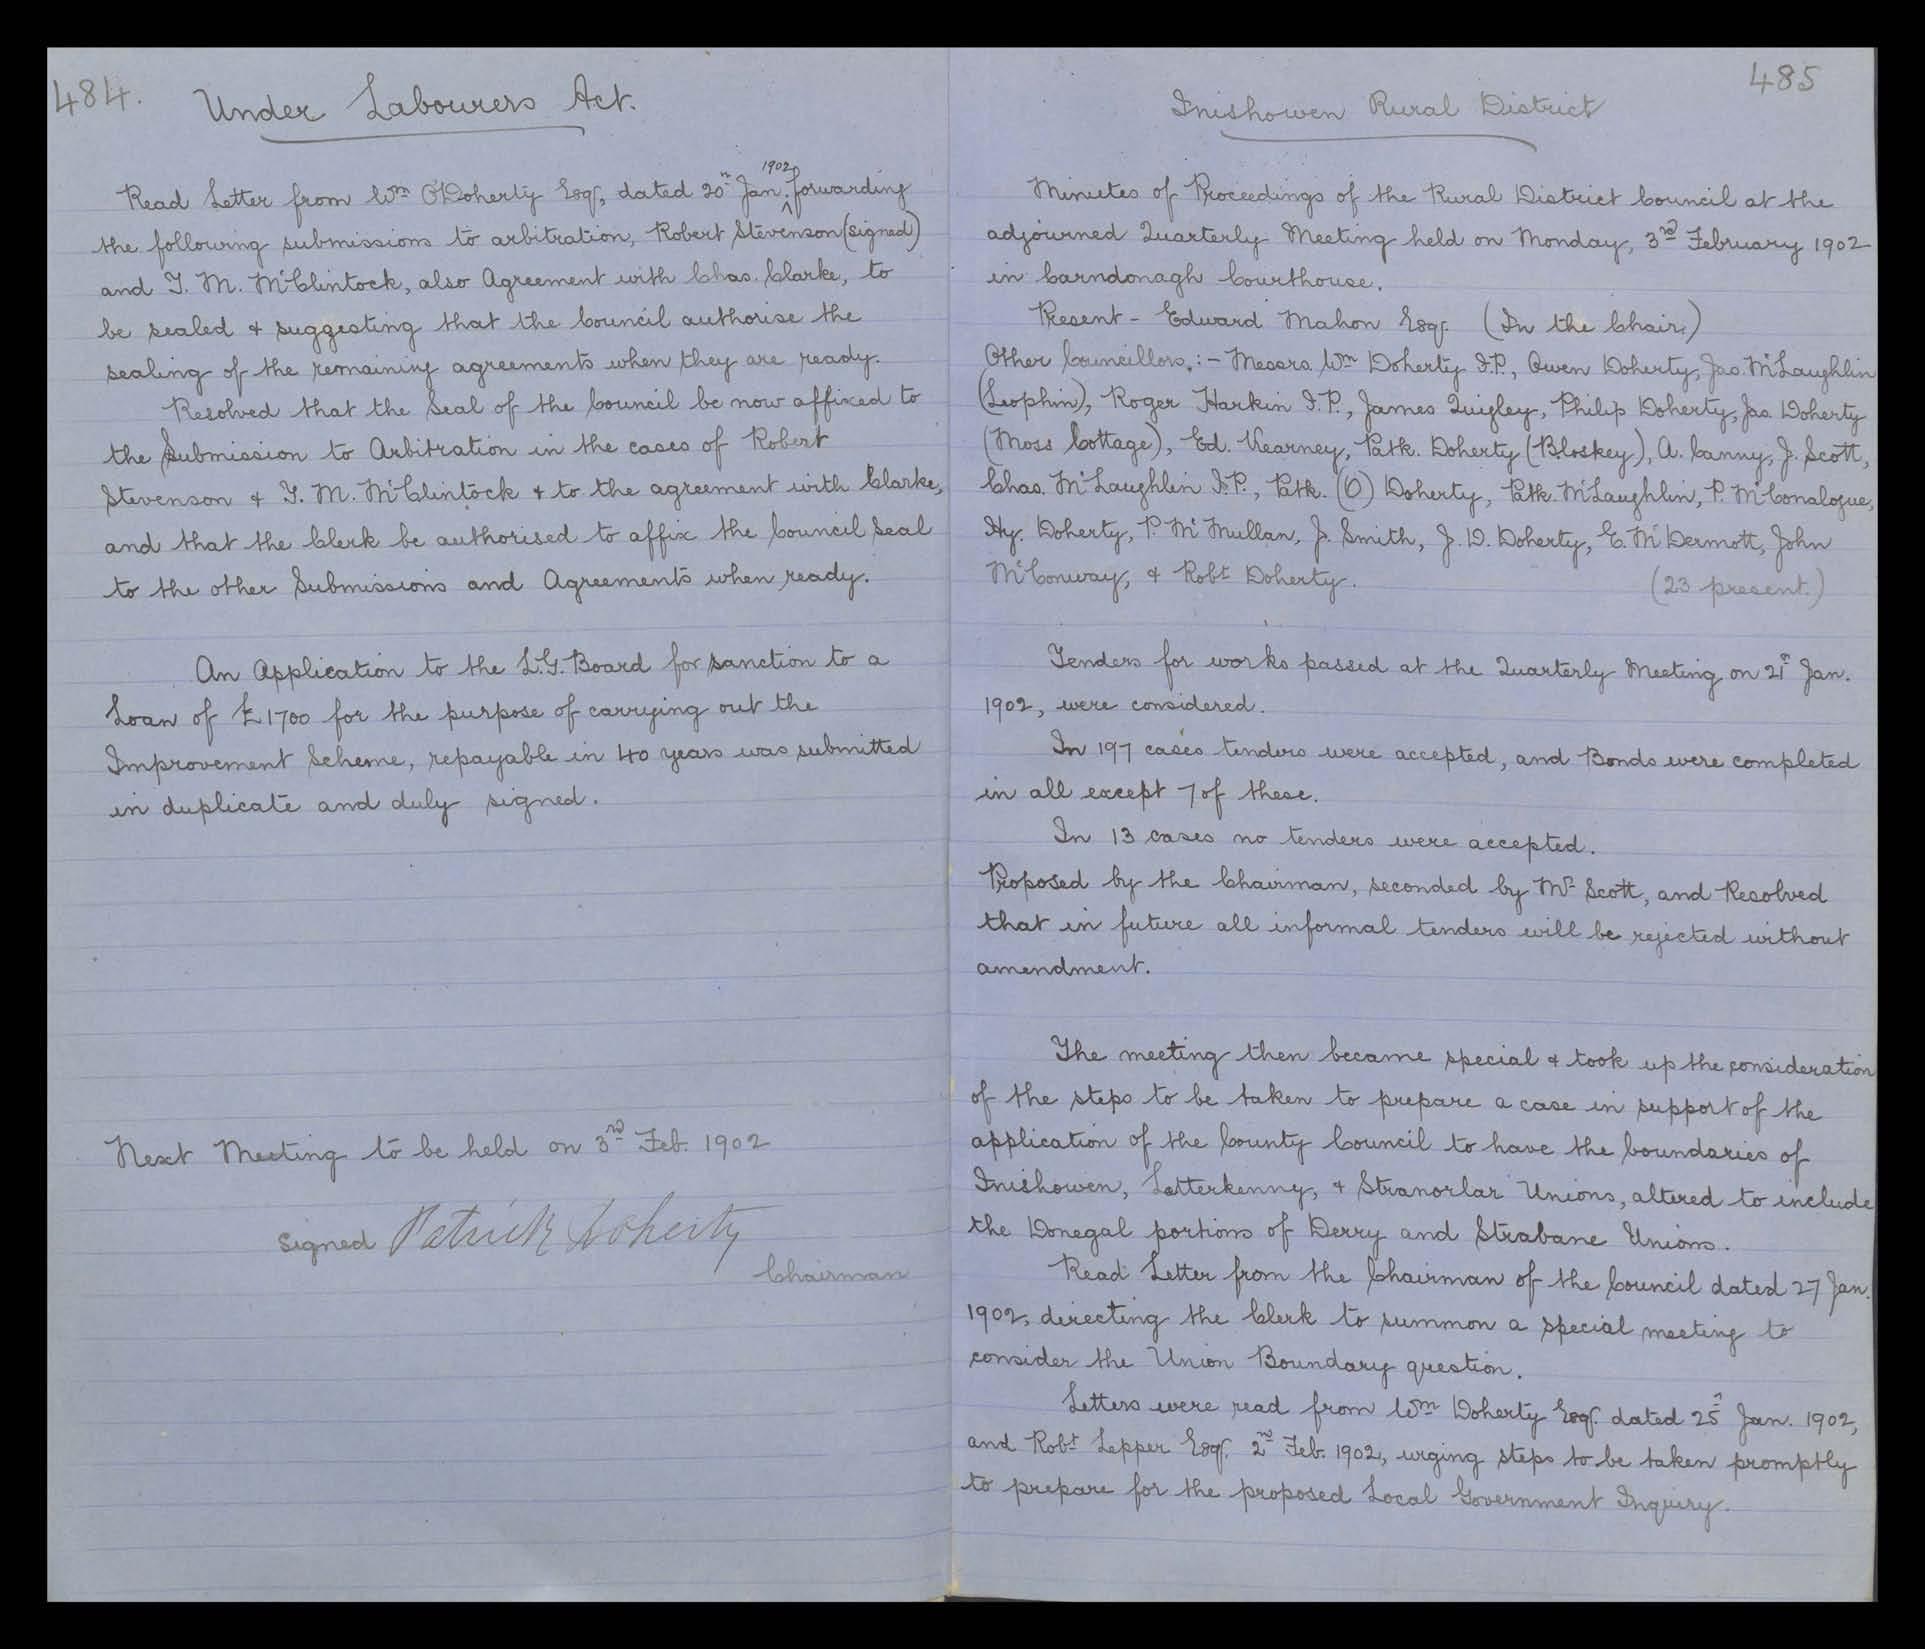 484.
Under Labourers Act.
Read Letter from Wm O'Doherty Esq., dated 20th Jan. 1902 forwarding
the following submissions to arbitration, Robert Stevenson (signed)
and T. M. McClintock, also Agreement with Chas. Clarke, to
be sealed & suggesting that the Council authorise the
sealing of the remaining agreements when they are ready.
Resolved that the Seal of the Council be now affixed to
the Submission to Arbitration in the cases of Robert
Stevenson & T. M. McClintock & to the agreement with Clarke,
and that the Clerk be authorised to affix the Council Seal
to the other Submissions and Agreements when ready.
An Application to the L.G. Board for sanction to a
Loan of £1700 for the purpose of carrying out the
Improvement Scheme, repayable in 40 years was submitted
in duplicate and duly signed.
Next Meeting to be held on 3rd Feb. 1902
Signed Patrick Doherty
Chairman
485
Inishowen Rural District
Minutes of Proceedings of the Rural District Council at the
adjourned Quarterly Meeting held on Monday, 3rd February 1902
in Carndonagh Courthouse.
Present - Edward Mahon Esq. (In the Chair.)
Other Councillors:- Messrs. Wm Doherty J.P., Owen Doherty, Jas. McLaughlin
(Leophin), Roger Harkin J.P., James Quigley, Philip Doherty, Jas. Doherty
(Moss Cottage), Ed. Kearney, Patk. Doherty (Bloskey), A. Canny, J. Scott,
Chas. McLaughlin J.P., Patk. (O) Doherty, Patk. McLaughlin, P. McConalogue,
Hy. Doherty, P. McMullan, J. Smith, J. D. Doherty, E. McDermott, John
McConway, & Robt Doherty. (23 present.)
Tenders for works passed at the Quarterly Meeting on 21st Jan.
1902, were considered.
In 197 cases tenders were accepted, and Bonds were completed
in all except 7 of these.
In 13 cases no tenders were accepted.
Proposed by the Chairman, seconded by Mr Scott, and Resolved
that in future all informal tenders will be rejected without
amendment.
The meeting then became special & took up the consideration
of the steps to be taken to prepare a case in support of the
application of the County Council to have the boundaries of
Inishowen, Letterkenny, & Stranorlar Unions, altered to include
the Donegal portions of Derry and Strabane Unions.
Read Letter from the Chairman of the Council dated 27 Jan.
1902, directing the Clerk to summon a special meeting to
consider the Union Boundary question.
Letters were read from Wm Doherty Esq. dated 25th Jan. 1902,
and Robt Lepper Esq. 2nd Feb. 1902, urging steps to be taken promptly
to prepare for the proposed Local Government Inquiry.